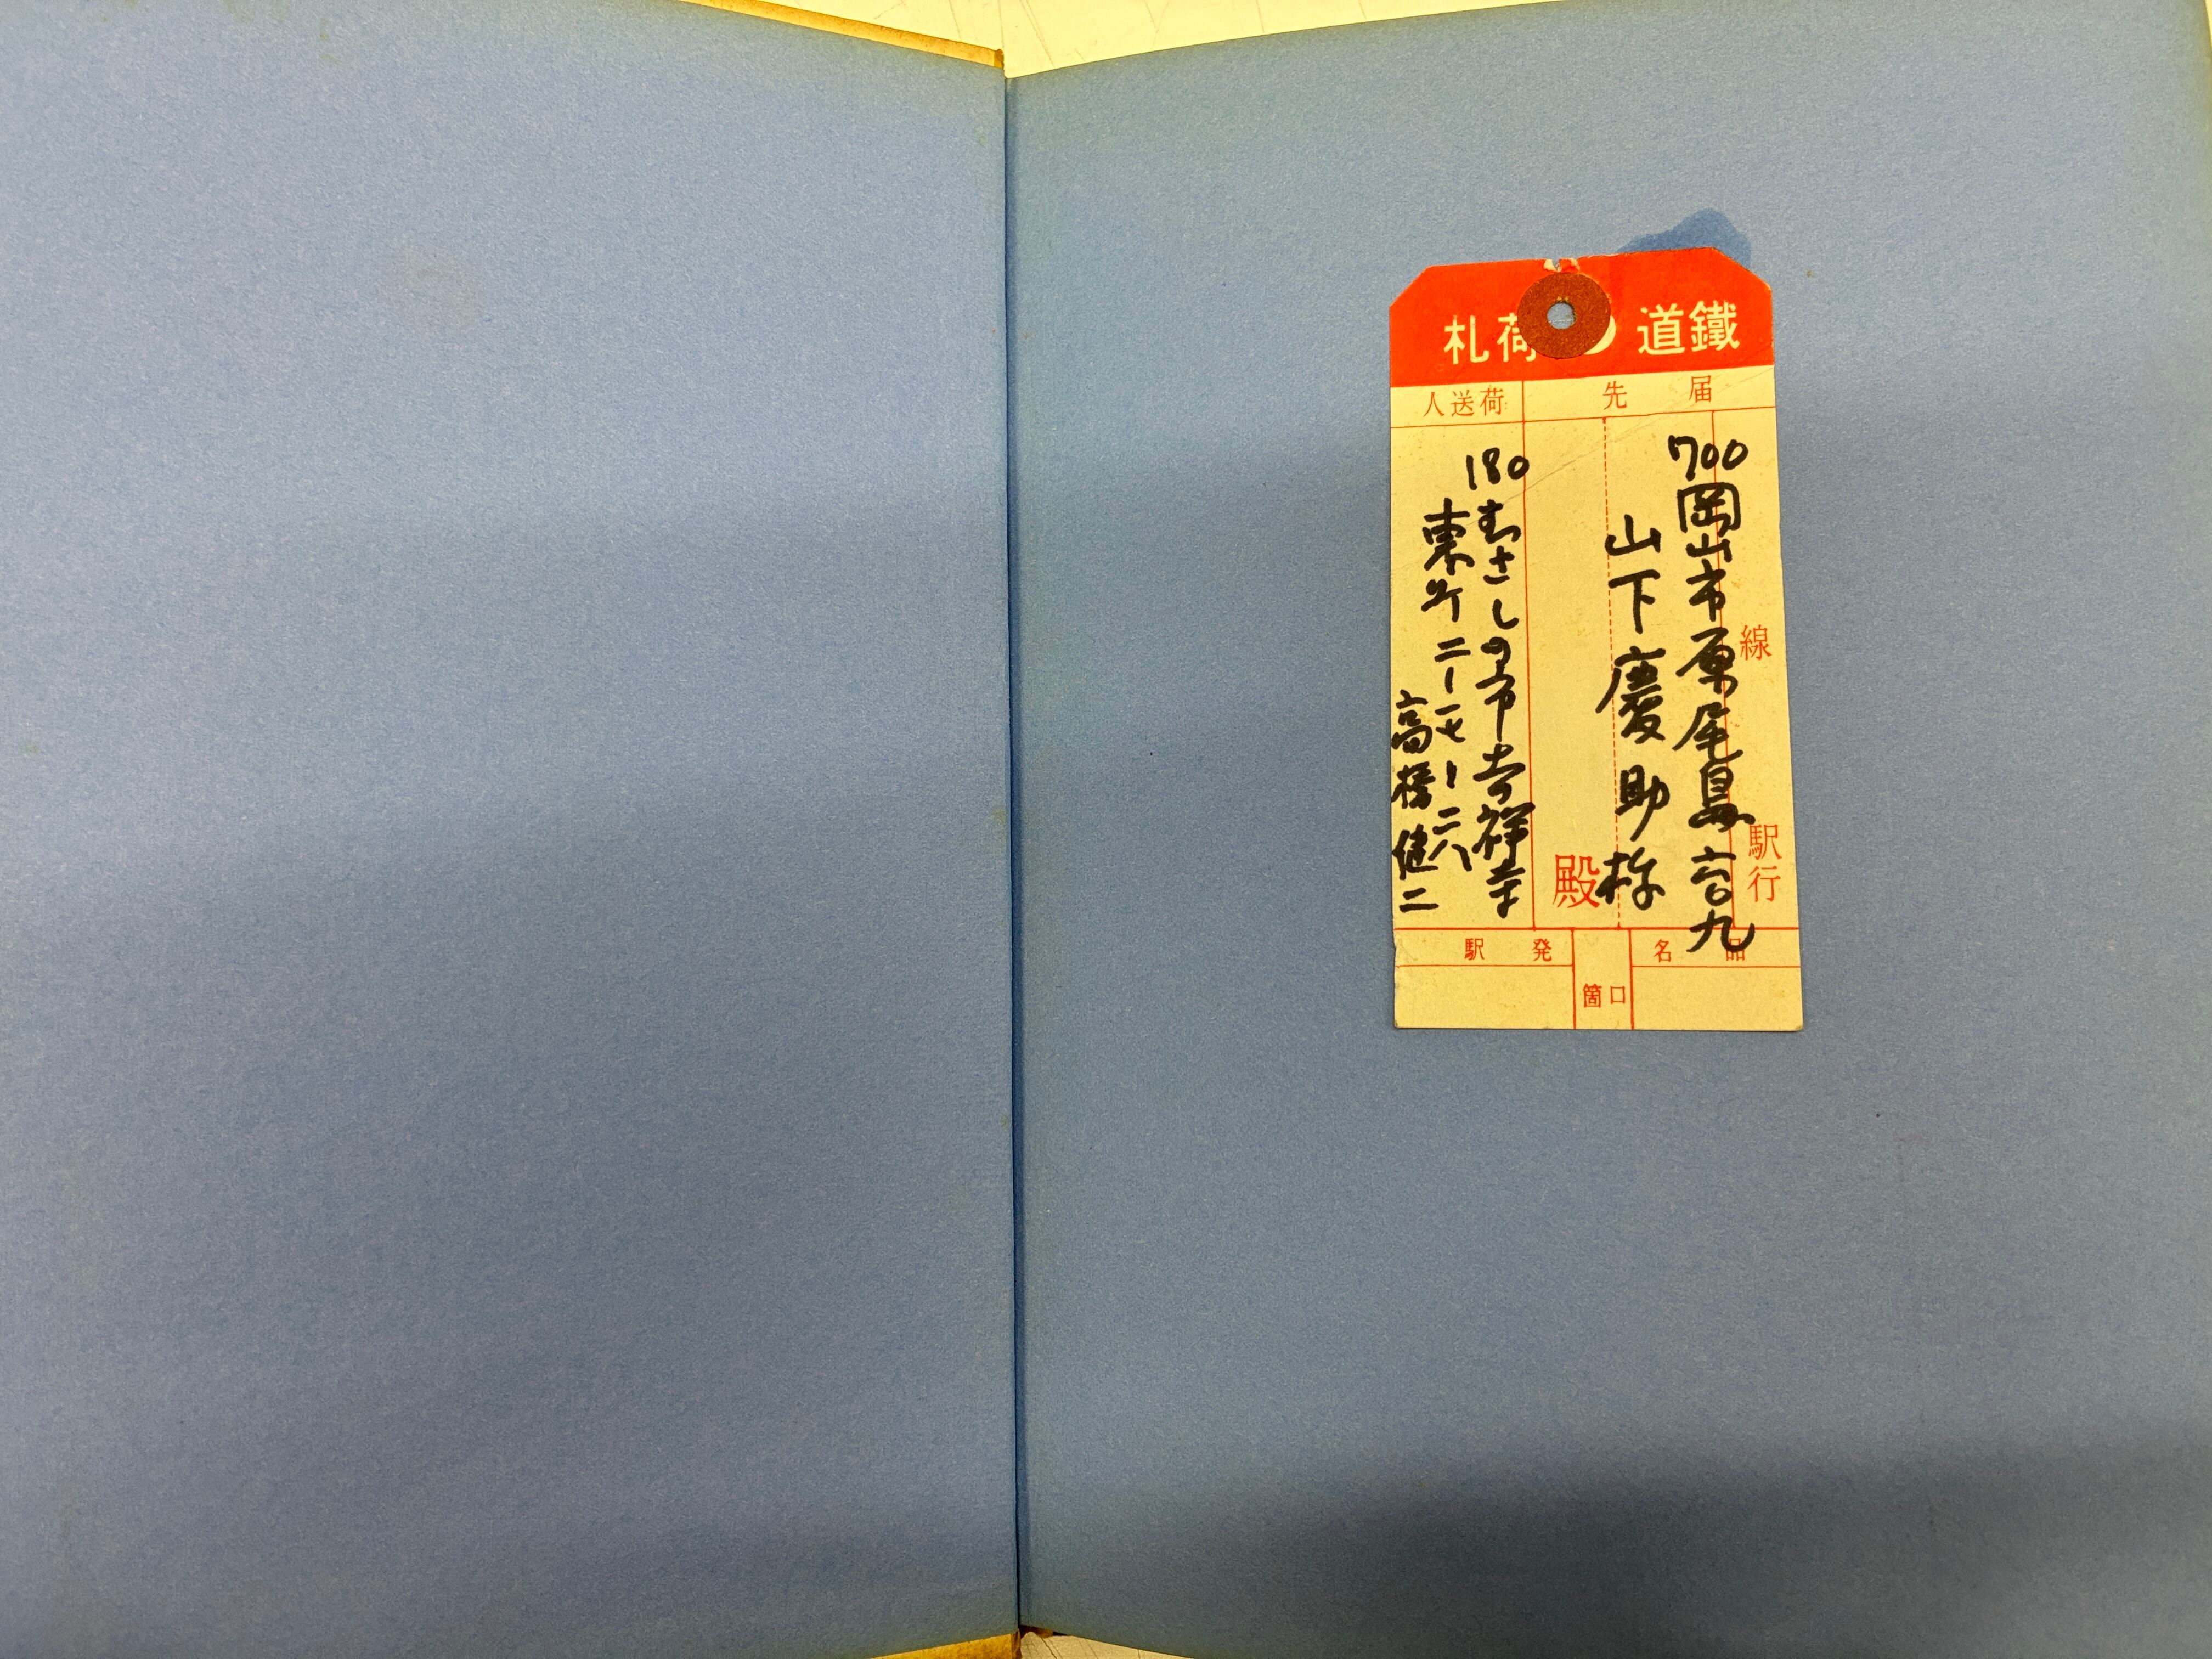 鐵道荷札
届先
荷送人
700
岡山市原尾島六〇九
山下慶助様
殿
線
駅行
180
むさしの市吉祥寺
東町二ー一七ー二八
高橋健二
品名
口箇
発駅